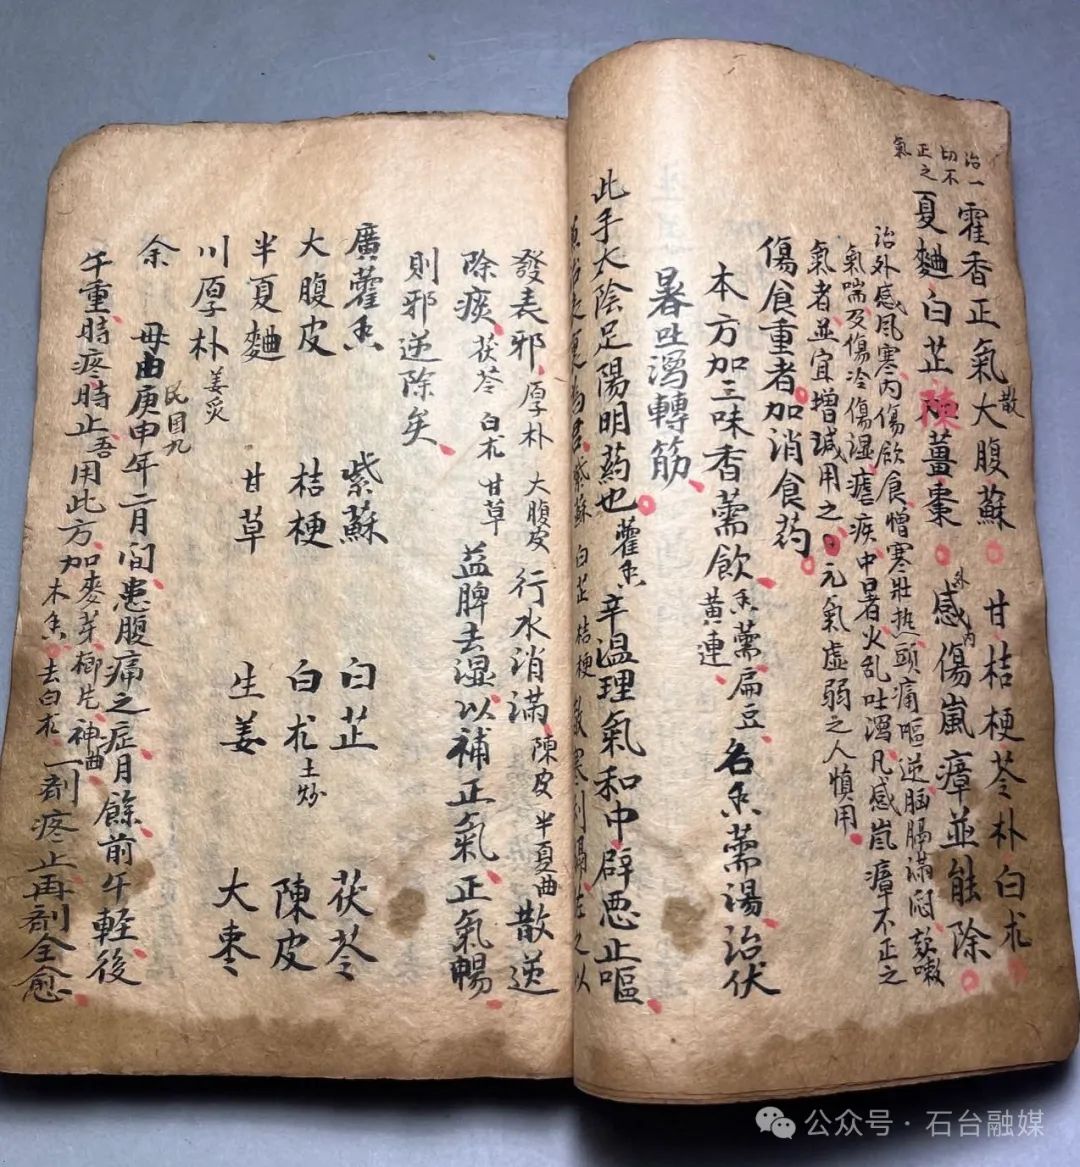 治一切不正之氣
霍香正氣散大腹蘇 甘桔梗苓朴白朮
夏麯白芷陳薑棗 感外傷内嵐瘴並能除
治外感風寒内傷飲食憎寒壯热頭痛嘔逆胸膈滿悶咳嗽
氣喘及傷冷傷湿瘧疾中暑火乱吐瀉凡感嵐瘴不正之
氣者並宜增減用之 元氣虛弱之人慎用
傷食重者加消食药
本方加三味香薷飲香薷扁豆黄連名香薷湯治伏
暑吐瀉轉筋
此手太陰足陽明药也藿香辛温理氣和中辟恶止嘔
為君紫蘇白芷桔梗散寒利膈佐之以
發表邪厚朴大腹皮行水消滿陳皮半夏曲散逆
除痰茯苓白朮甘草益脾去湿以補正氣正氣暢
則邪逆除矣
廣藿香 紫蘇 白芷 茯苓
大腹皮 桔梗 白朮土炒 陳皮
半夏麯 甘草 生姜 大枣
川厚朴姜炙
余母由庚申年民国九二月間患腹痛之症月餘前午輕後
午重時疼時止吾用此方加麥芽榔片神曲木香去白朮一剤疼止再剤全愈
公众号·石台融媒